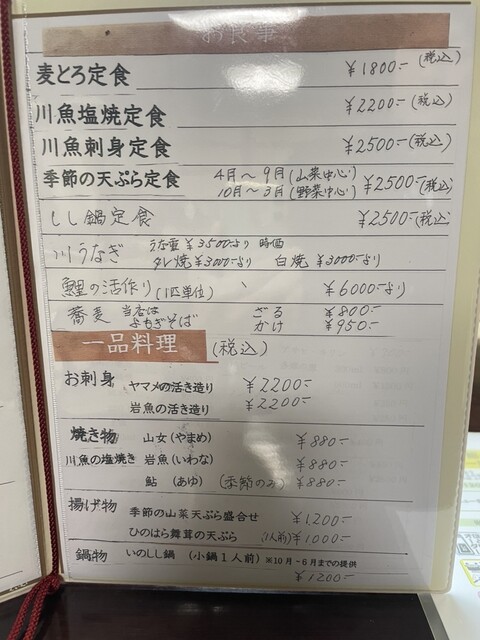 お食事
麦とろ定食 ¥1800:- (税込)
川魚塩焼定食 ¥2200:-(税込)
川魚刺身定食 ¥2500:-(税込)
季節の天ぷら定食 4月〜9月(山菜中心) 10月〜3月(野菜中心) ¥2500:-(税込)
しし鍋定食 ¥2500:-(税込)
川うなぎ うな重¥3500より 時価
タレ焼¥3000より 白焼 ¥3000より
鯉の活作り(1匹単位) ¥6000より
蕎麦 当店はよもぎそば ざる ¥800:-
かけ ¥950:-
一品料理 (税込)
お刺身 ヤマメの活き造り ¥2200:-
岩魚の活き造り ¥2200:-
焼き物 山女(やまめ) ¥880:-
川魚の塩焼き 岩魚(いわな) ¥880:-
鮎 (あゆ) (季節のみ) ¥880:-
揚げ物 季節の山菜天ぷら盛合せ ¥1200:-
ひのはら舞茸の天ぷら (1人前)¥1000:-
鍋物 いのしし鍋 (小鍋1人前) ※10月-6月までの提供
¥1200:-